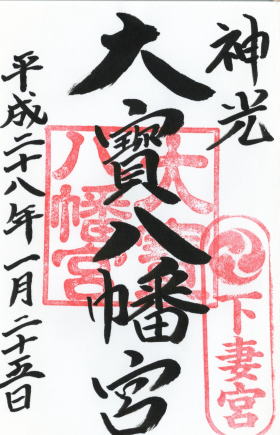 神光
大寳八幡宮
平成二十八年一月二十五日
大寳八幡宮
下妻宮